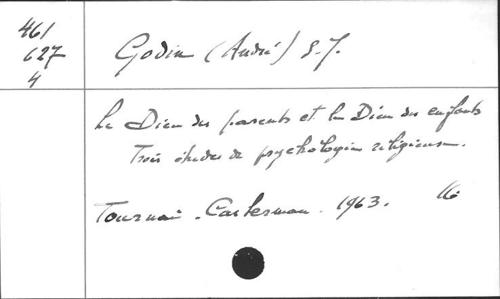 461
627
4
Godin (André) S.J.
Le Dieu des parents et le Dieu des enfants
Trois études de psychologie religieuse.
Tournai. Casterman. 1963.